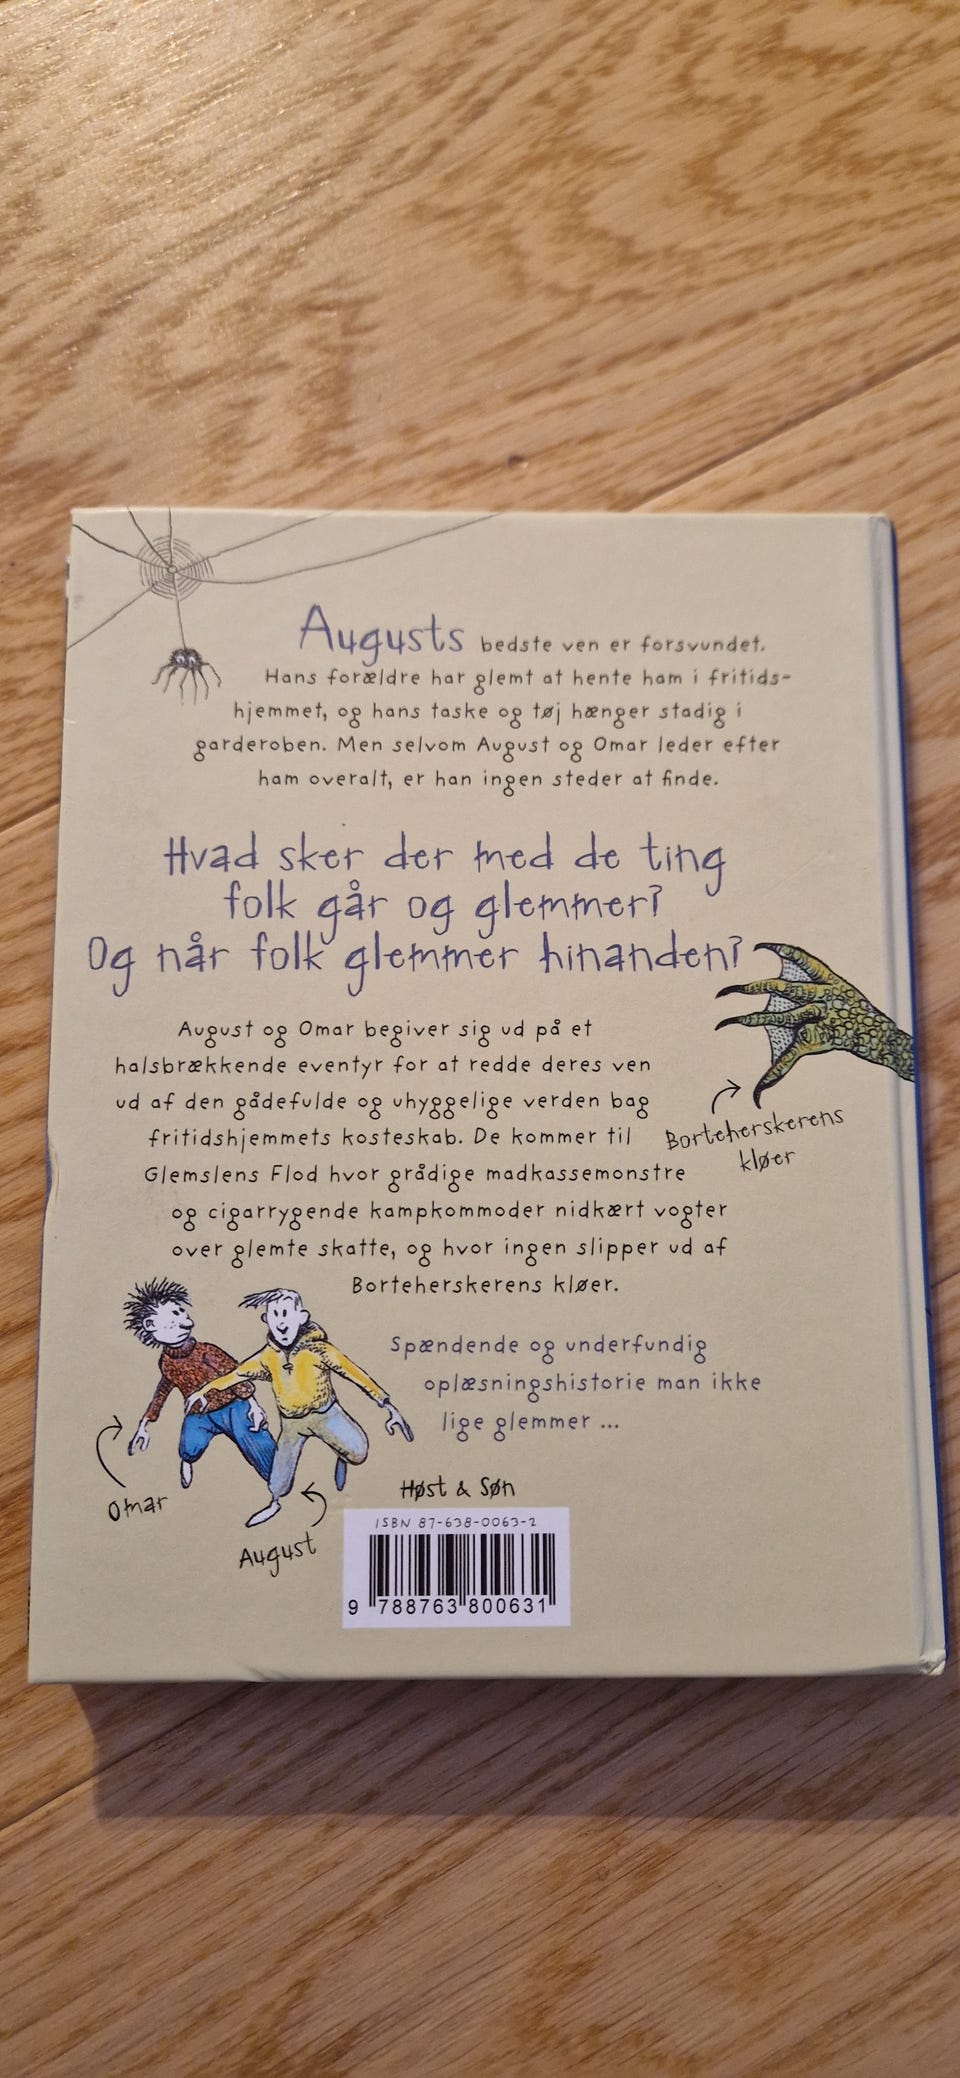 Augusts bedste ven er forsvundet.
Hans forældre har glemt at hente ham i fritids-
hjemmet, og hans taske og tøj hænger stadig i
garderoben. Men selvom August og Omar leder efter
ham overalt, er han ingen steder at finde.
Hvad sker der med de ting
folk går og glemmer?
Og når folk glemmer hinanden?
August og Omar begiver sig ud på et
halsbrækkende eventyr for at redde deres ven
ud af den gådefulde og uhyggelige verden bag
fritidshjemmets kosteskab. De kommer til
Glemslens Flod hvor grådige madkassemonstre
og cigarrygende kampkommoder nidkært vogter
over glemte skatte, og hvor ingen slipper ud af
Borteherskerens kløer.
Borteherskerens
kløer
Spændende og underfundig
oplæsningshistorie man ikke
lige glemmer ...
Omar
August
Høst & Søn
ISBN 87-638-0063-2
9 788763 800631